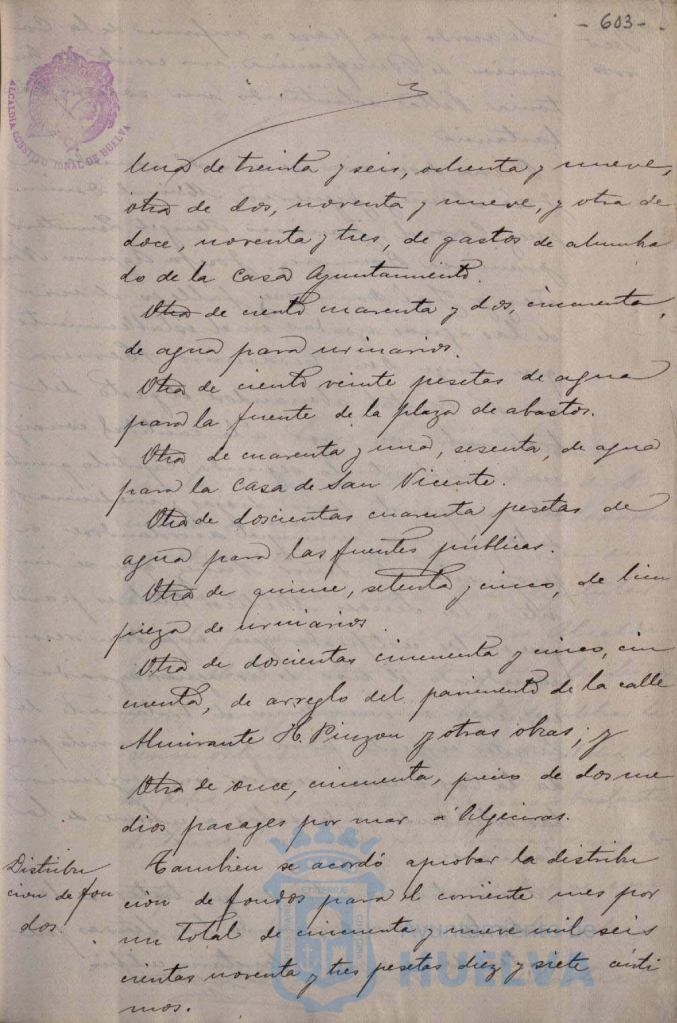 - 603 -
ALCALDIA CONSTITUCIONAL DE HUELVA
Una de treinta y seis, ochenta y nueve,
otra de dos, noventa y nueve, y otra de
doce, noventa y tres, de gastos de alumbra
do de la Casa Ayuntamiento.
Otra de ciento cuarenta y dos, cincuenta,
de agua para urinarios.
Otra de ciento veinte pesetas de agua
para la fuente de la plaza de abastos.
Otra de cuarenta y una, sesenta, de agua
para la Casa de San Vicente.
Otra de doscientas cuarenta pesetas de
agua para las fuentes públicas.
Otra de quince, setenta y cinco, de lim
pieza de urinarios.
Otra de doscientas cincuenta y cinco, cin
cuenta, de arreglo del pavimento de la calle
Almirante H. Pinzon y otras obras; y
Otra de once, cincuenta, precio de dos me
dios pasages por mar á Algeciras.
Distribu
cion de fon
dos.
Tambien se acordó aprobar la distribu
cion de fondos para el corriente mes por
un total de cincuenta y nueve mil seis
cientas noventa y tres pesetas diez y siete cénti
mos.
HUELVA